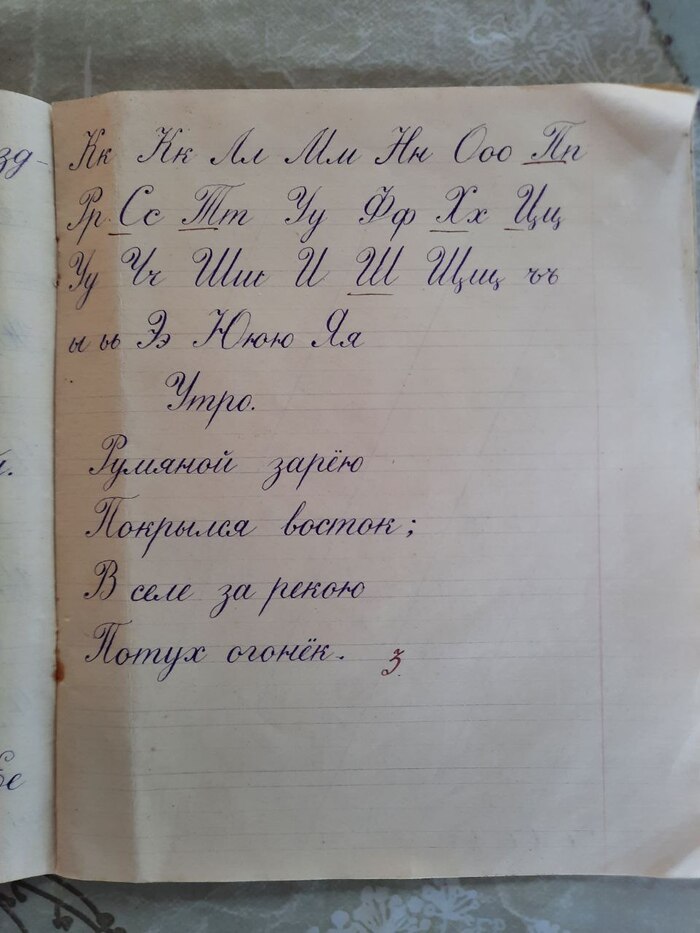 зд-
Кк Кк Лл Мм Нн Ооо Пп
Рр Сс Тт Уу Фф Хх Цц
Уу Чч Шш И Ш Щщ ъъ
ы ьь Ээ Ююю Яя
Утро.
Румяной зарёю
Покрылся восток;
В селе за рекою
Потух огонёк. 3